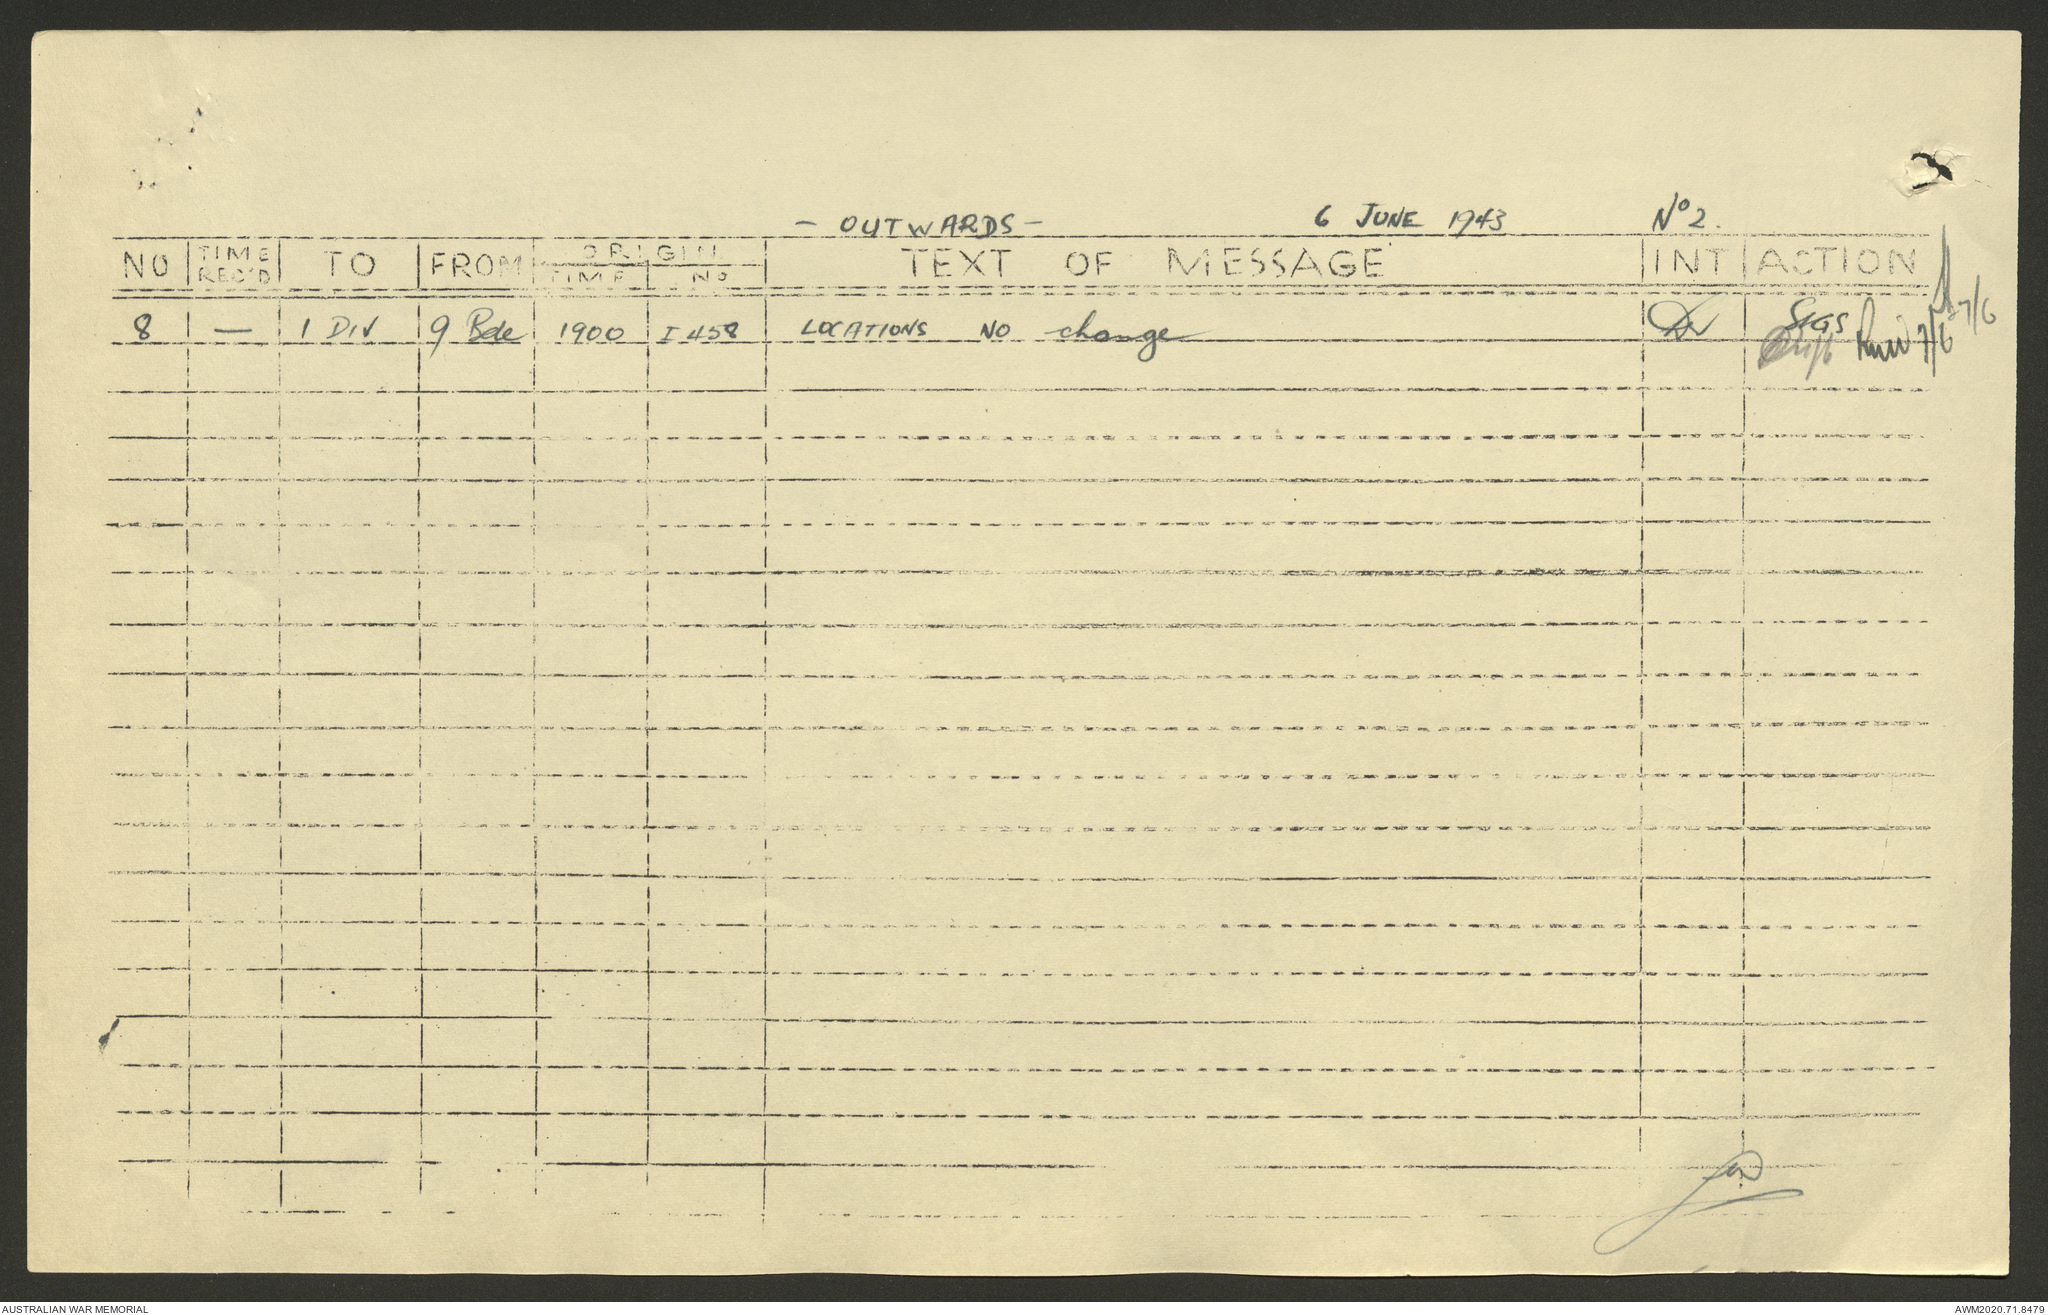 - OUTWARDS - 6 JUNE 1943 Nº 2.
NO TIME REC'D TO FROM ORIGIN TIME No TEXT OF MESSAGE INT ACTION
8 — 1 DIV 9 Bde 1900 I 458 LOCATIONS NO change SIGS
7/6 7/6
AUSTRALIAN WAR MEMORIAL AWM2020.71.8479